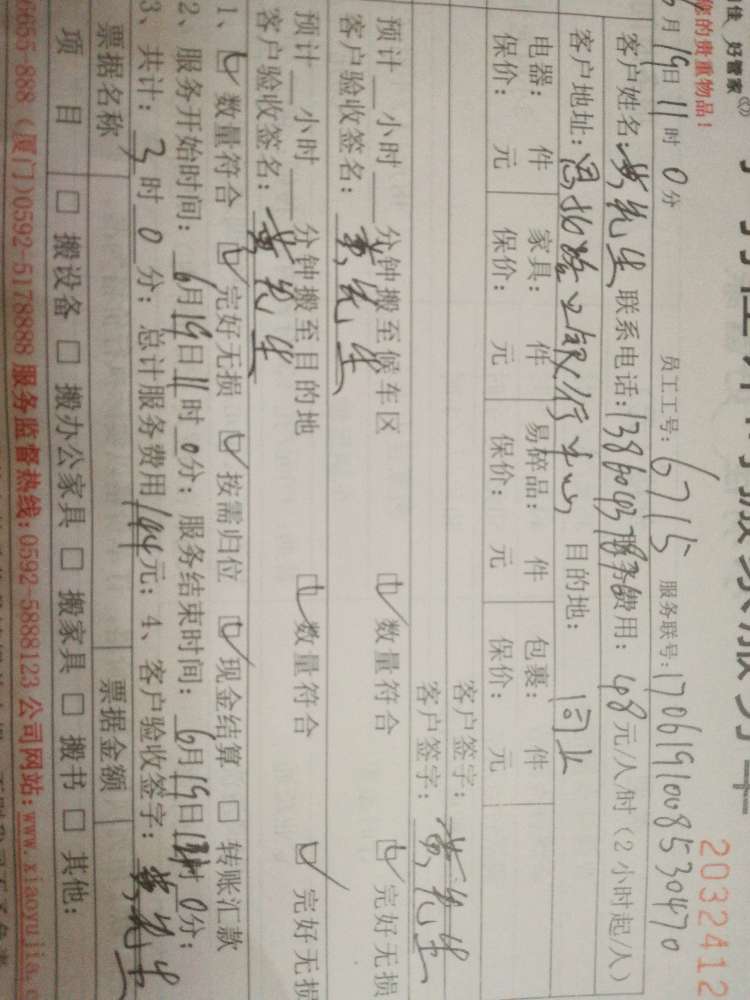 住 好管家
您的贵重物品!
2032412
6月19日11时0分 员工工号:6715 服务联号:1706191008530470
客户姓名:黄先生 联系电话: 服务费用:48元/人/时(2小时起/人)
客户地址: 目的地:同上
电器: 件 家具: 件 易碎品: 件 包裹: 件 客户签字:
保价: 元 保价: 元 保价: 元 保价: 元 客户签字:黄先生
预计__小时__分钟搬至候车区 ☑数量符合 ☑完好无损
客户验收签名:黄先生
预计__小时__分钟搬至目的地 ☑数量符合 ☑完好无损
客户验收签名:黄先生
1、☑数量符合 ☑完好无损 ☑按需归位 ☑现金结算 □转账汇款
2、服务开始时间:6月19日11时0分;服务结束时间:6月19日时0分;
3、共计:3时0分;总计服务费用144元;4、客户验收签字:黄先生
票据名称 票据金额
项 目 □搬设备 □搬办公家具 □搬家具 □搬书 □其他:
6655-888(厦门)0592-5178888 服务监督热线:0592-5888123 公司网站:www.xiaoyujia.c